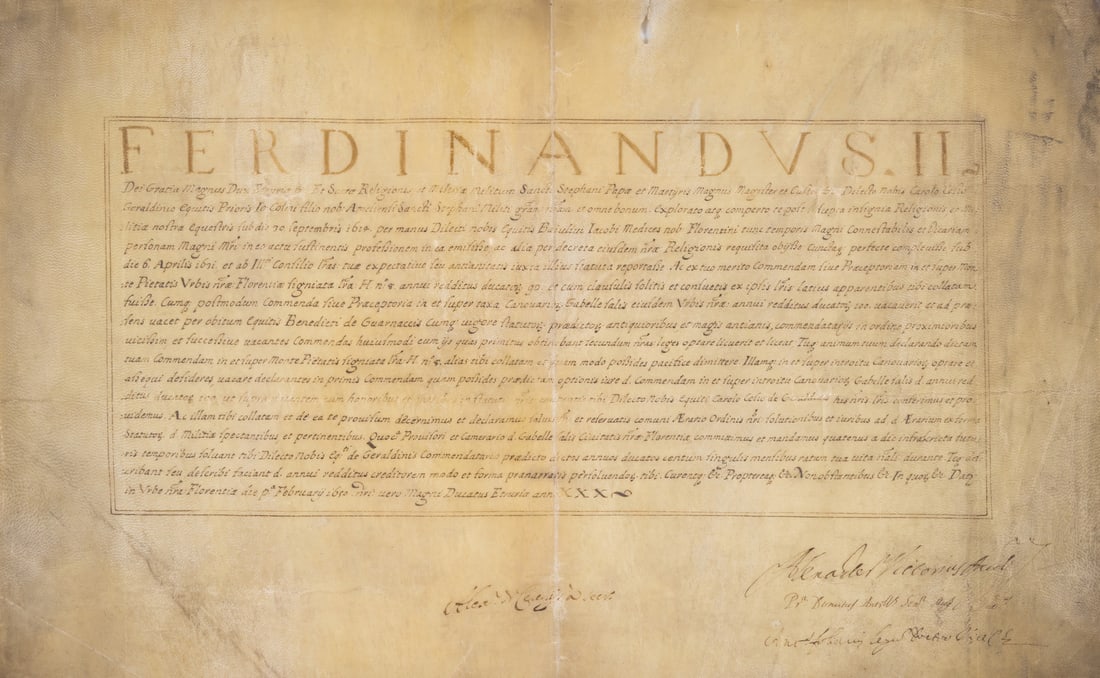 FERDINANDVS. II.
Dei Gratia Magnus Dux Etruriæ &c. Et Sacræ Religionis, et Militiæ Militum Sancti Stephani Papæ et Martyris Magnus Magister et Dilecto nobis Carolo Celio
Geraldinio Equitis Prioris filio nob Amelienti Sancti Stephani Militi et omne bonum. Explorato atq comperto te post insignia Religionis, et Mi-
litiæ nostræ Equestris sub die septembris per manus Dilecti nobis Equitis Baiulivi Iacobi Medices nob Florentini tunc temporis Magni Connestabilis et Vicariam
personam Magni Mri in eo actu sustinentis professionem in ea emisisse, ac alia per decreta eiusdem nræ Religionis requisita obijsse Cunctaq perfecte complevisse sub
die 6. Aprilis et ab Ill.mo Consilio lras tuæ expectativæ seu antianitatis iuxta illius statuta reportasse. Ac ex tuo merito Commendam sive Præceptoriam in et super Mon-
te Pietatis Vrbis nræ Florentiæ signata lra H. nº 8. annui redditus ducatoꝝ 90. cum clausulis solitis et consuetis ex ipsis lris latius apparentibus tibi collatam
fuisse. Cumq postmodum Commenda sive Præceptoria in et super taxa Canovarioꝝ Gabelle salis eiusdem Vrbis nræ annui redditus ducatoꝝ 100. vacaverit et ad præ-
sens vacet per obitum Equitis Benedicti de Guarnaccis Cumq vigore statutoꝝ prædictoꝝ antiquioribus et magis antianis, commendatarijs in ordine proximioribus
vicissim et successive vacantes Commendas huiusmodi cum ijs quas primitus obtinebant secundum nras leges optare licuerit et liceat Tuq animum tuum declarando dictam
tuam Commendam in et super Monte Pietatis signata lra H nº 8. alias tibi collatam et quam modo possides pacifice dimittere. Illamq in et super introitu Canovarioꝝ optare et
assequi desideres vacare declarantes in primis Commendam quam possides prædictam optionis iure d. Commendam in et super introitu Canovarioꝝ Gabelle salis d. annui red-
ditus ducatoꝝ 100. ut supra vacantem cum honoribus et oneribus in statutis tibi Dilecto Nobis Equiti Carolo Celio de Geraldinis his nris lris conferimus et pro-
videmus. Ac illam tibi collatam et de ea te provisum decernimus et declaramus salvis et reservatis comuni Ærario Ordinis nri solutionibus et iuribus ad d. Ærarium ex forma
Statutoꝝ d. Militiæ spectantibus et pertinentibus. Quoc Provisori et Camerario d. Gabelle salis Civitatis nræ Florentiæ, committimus et mandamus quatenus a die infrascripta
ris temporibus solvant tibi Dilecto Nobis Eqi de Geraldinis Commendatario prædicto dictos annuos ducatos centum singulis mensibus ratam tua vita durante Teq
cribant seu describi faciant d. annui redditus creditorem modo et forma prænarratis persolvendoꝝ tibi. Curenteq &c. Proptereaq &c. Nonobstantibus &c In quoꝝ &c Datꝝ
in Vrbe nra Florentiæ die pa February nri vero Magni Ducatus Etruriæ anno XXX